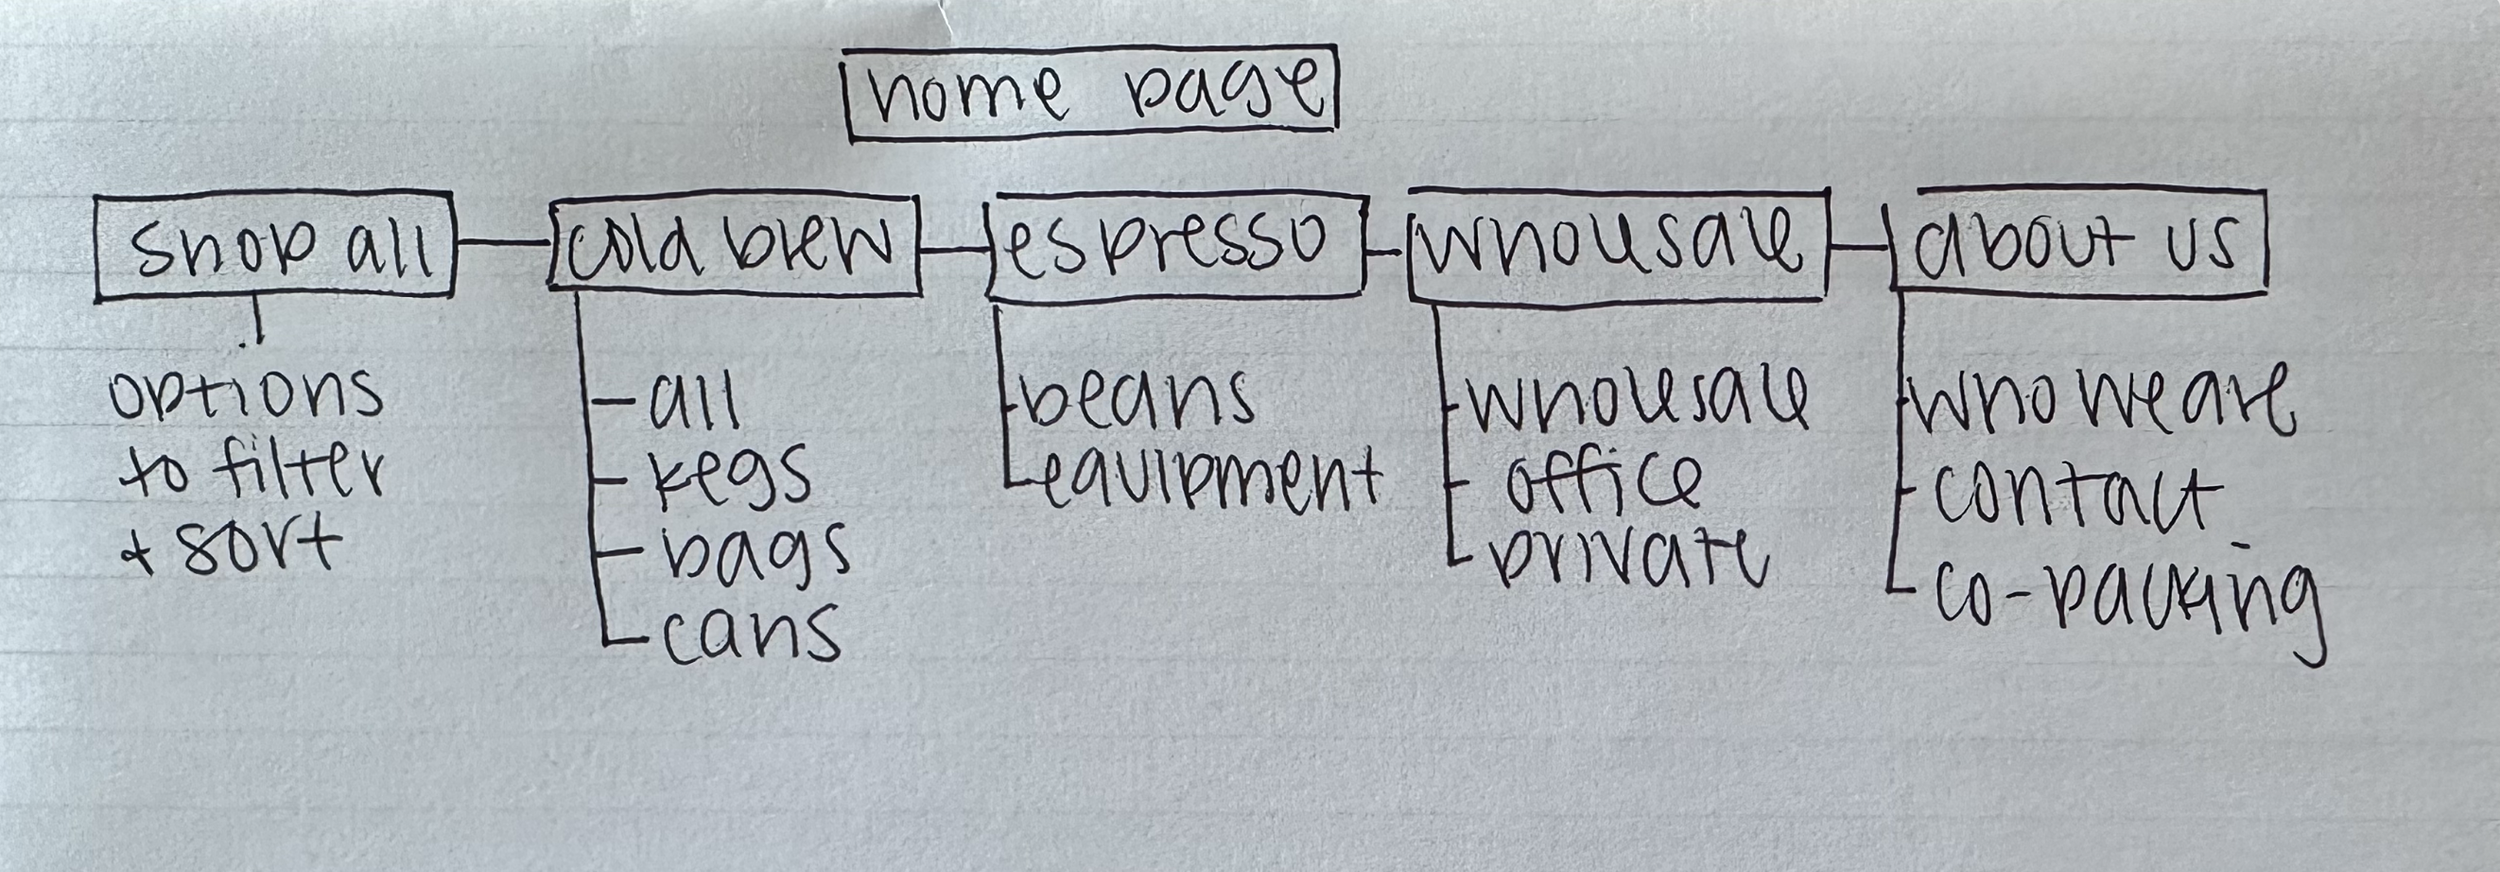 home page
shop all
cold brew
espresso
wholesale
about us
options
to filter
+ sort
all
kegs
bags
cans
beans
equipment
wholesale
office
private
who we are
contact
co-packing